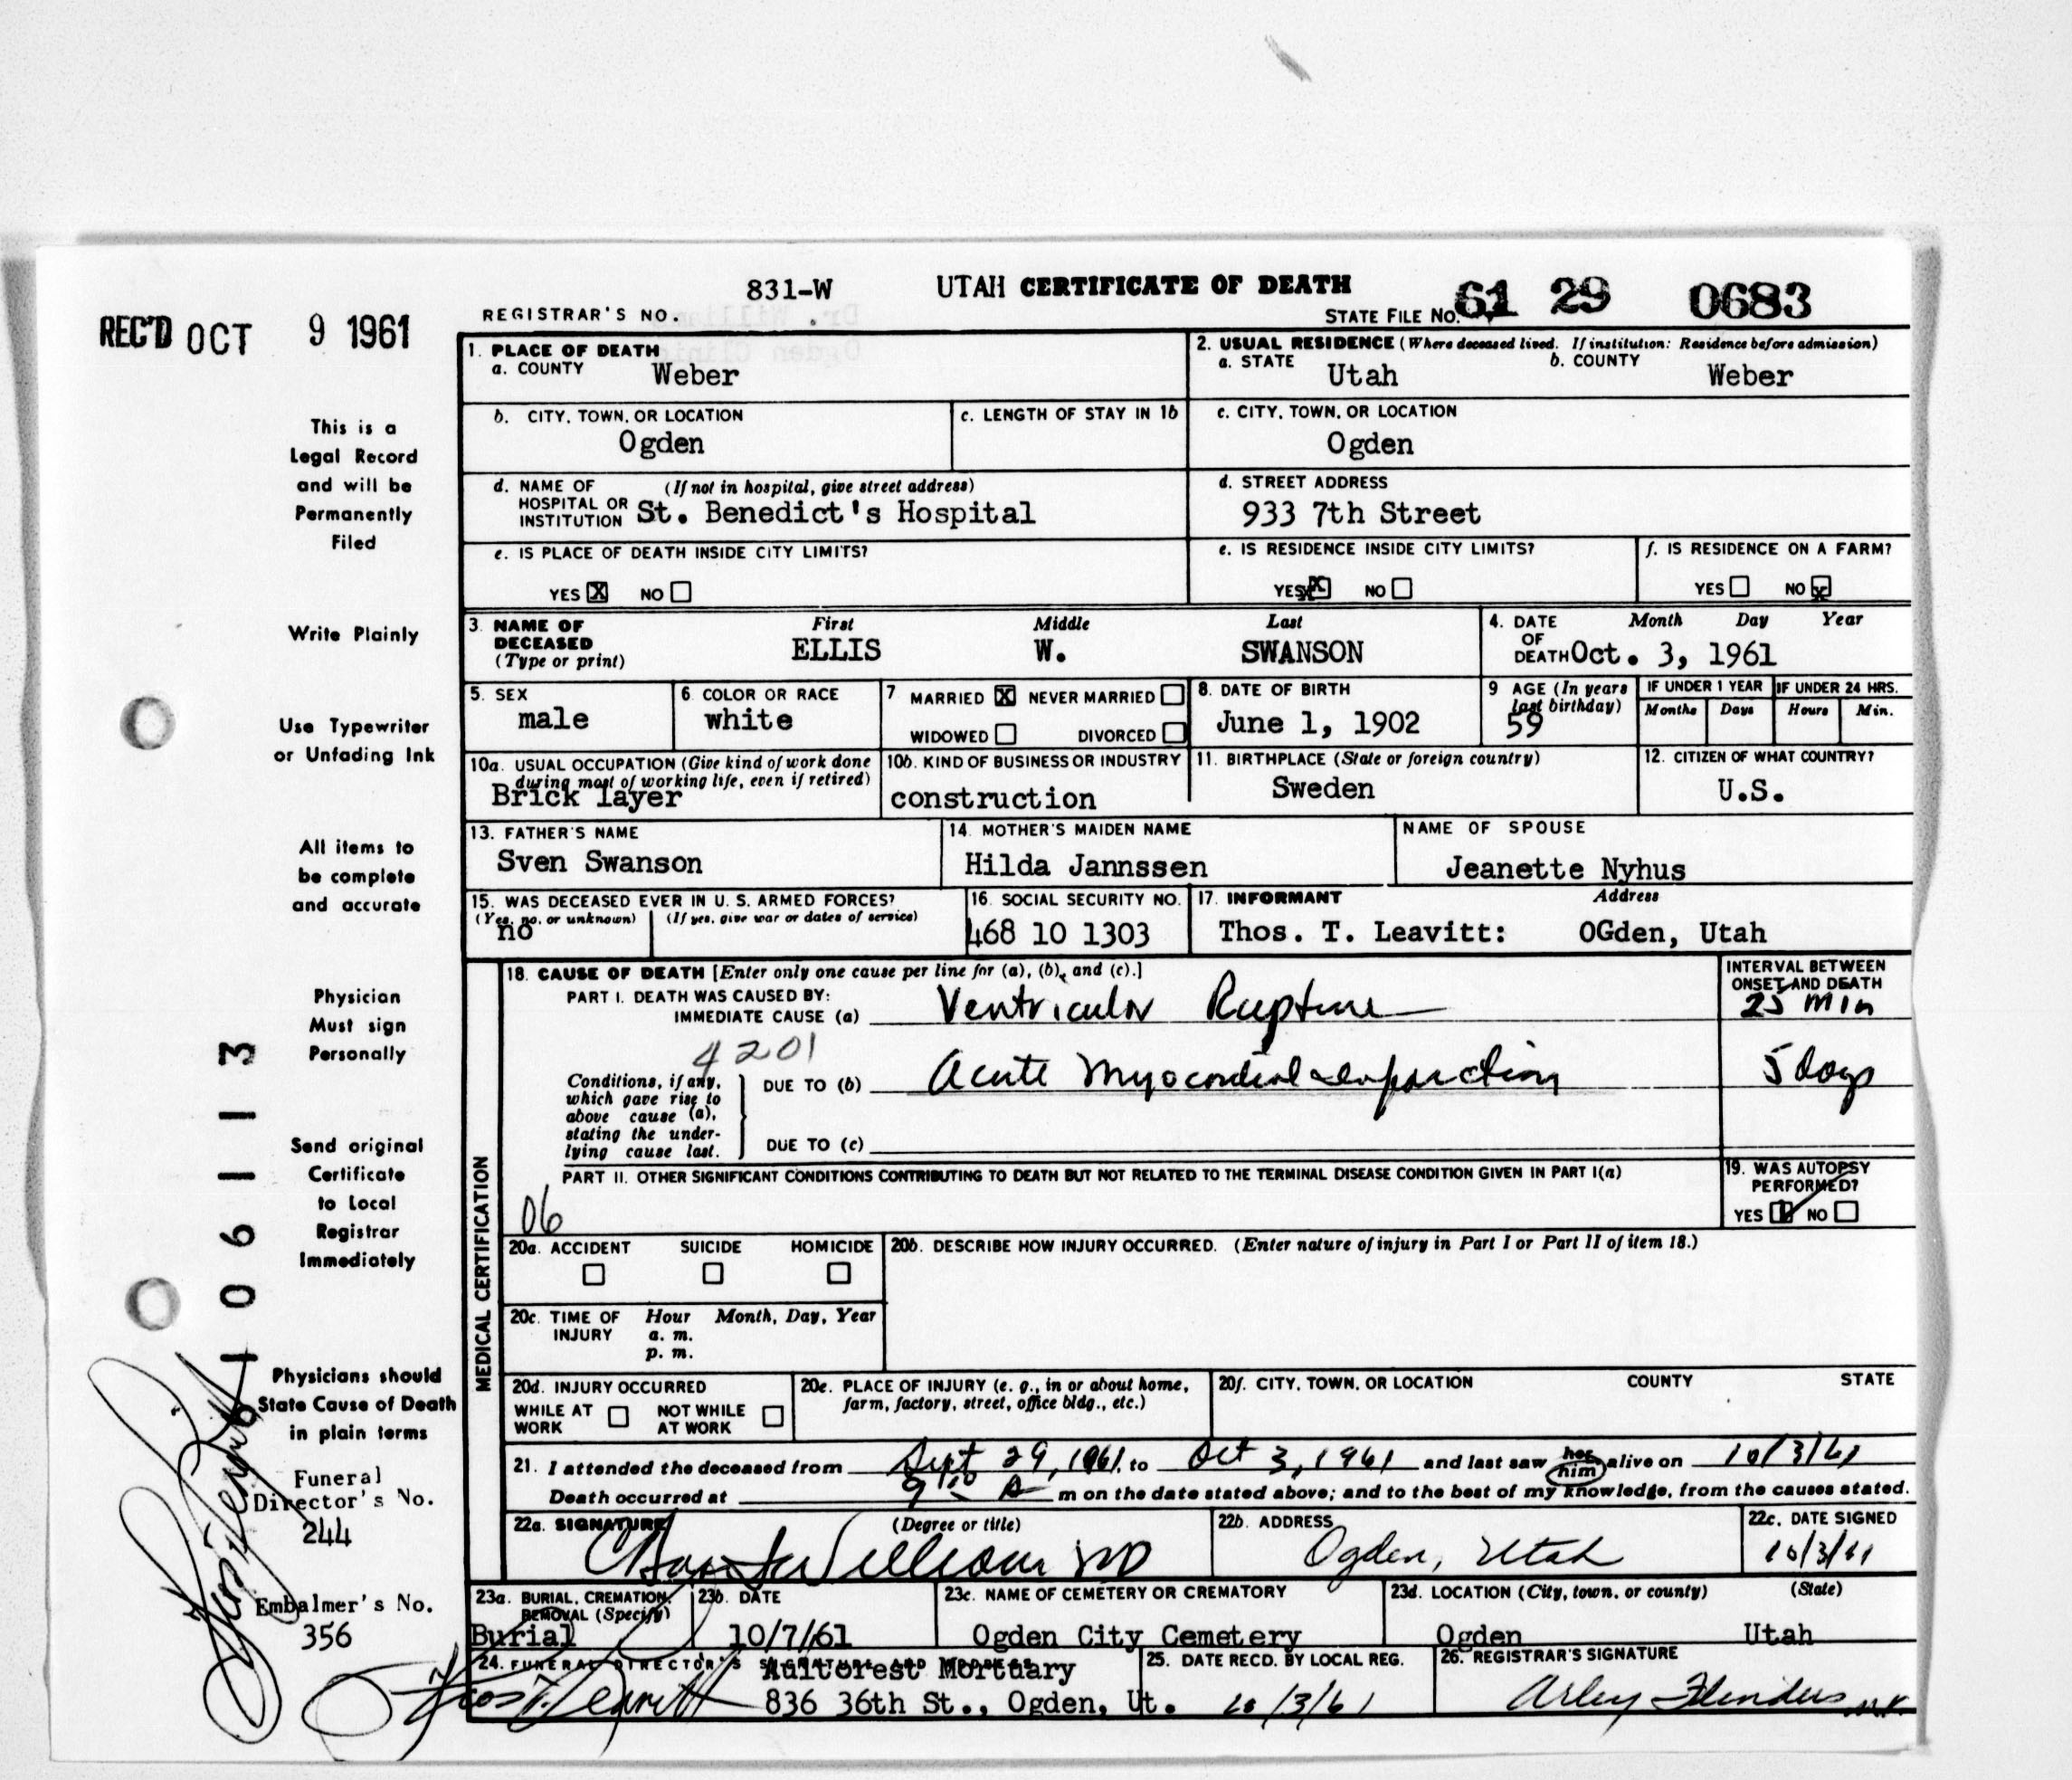 831-W UTAH CERTIFICATE OF DEATH
REGISTRAR'S NO. STATE FILE NO. 61 29 0683
REC'D OCT 9 1961
This is a
Legal Record
and will be
Permanently
Filed
Write Plainly
Use Typewriter
or Unfading Ink
All items to
be complete
and accurate
Physician
Must sign
Personally
Send original
Certificate
to Local
Registrar
Immediately
Physicians should
State Cause of Death
in plain terms
Funeral
Director's No.
244
Embalmer's No.
356
1. PLACE OF DEATH
a. COUNTY Weber
2. USUAL RESIDENCE (Where deceased lived. If institution: Residence before admission)
a. STATE Utah b. COUNTY Weber
b. CITY, TOWN, OR LOCATION
Ogden
c. LENGTH OF STAY IN 1b
c. CITY, TOWN, OR LOCATION
Ogden
d. NAME OF (If not in hospital, give street address)
HOSPITAL OR
INSTITUTION St. Benedict's Hospital
d. STREET ADDRESS
933 7th Street
e. IS PLACE OF DEATH INSIDE CITY LIMITS?
YES X NO
e. IS RESIDENCE INSIDE CITY LIMITS?
YES X NO
f. IS RESIDENCE ON A FARM?
YES NO X
3. NAME OF
DECEASED
(Type or print)
First Middle Last
ELLIS W. SWANSON
4. DATE Month Day Year
OF
DEATH Oct. 3, 1961
5. SEX
male
6. COLOR OR RACE
white
7 MARRIED X NEVER MARRIED
WIDOWED DIVORCED
8. DATE OF BIRTH
June 1, 1902
9 AGE (In years
last birthday)
59
IF UNDER 1 YEAR
Months Days
IF UNDER 24 HRS.
Hours Min.
10a. USUAL OCCUPATION (Give kind of work done
during most of working life, even if retired)
Brick layer
10b. KIND OF BUSINESS OR INDUSTRY
construction
11. BIRTHPLACE (State or foreign country)
Sweden
12. CITIZEN OF WHAT COUNTRY?
U.S.
13. FATHER'S NAME
Sven Swanson
14. MOTHER'S MAIDEN NAME
Hilda Jannssen
NAME OF SPOUSE
Jeanette Nyhus
15. WAS DECEASED EVER IN U. S. ARMED FORCES?
(Yes, no, or unknown) (If yes, give war or dates of service)
no
16. SOCIAL SECURITY NO.
468 10 1303
17. INFORMANT Address
Thos. T. Leavitt: OGden, Utah
MEDICAL CERTIFICATION
18. CAUSE OF DEATH [Enter only one cause per line for (a), (b), and (c).]
PART I. DEATH WAS CAUSED BY:
IMMEDIATE CAUSE (a) Ventricular Rupture
INTERVAL BETWEEN
ONSET AND DEATH
25 min
4201
Conditions, if any,
which gave rise to
above cause (a),
stating the under-
lying cause last.
DUE TO (b) Acute Myocardial infarction
5 days
DUE TO (c)
PART II. OTHER SIGNIFICANT CONDITIONS CONTRIBUTING TO DEATH BUT NOT RELATED TO THE TERMINAL DISEASE CONDITION GIVEN IN PART I(a)
06
19. WAS AUTOPSY
PERFORMED?
YES NO
20a. ACCIDENT SUICIDE HOMICIDE
20b. DESCRIBE HOW INJURY OCCURRED. (Enter nature of injury in Part I or Part II of item 18.)
20c. TIME OF Hour Month, Day, Year
INJURY a. m.
p. m.
20d. INJURY OCCURRED
WHILE AT NOT WHILE
WORK AT WORK
20e. PLACE OF INJURY (e. g., in or about home,
farm, factory, street, office bldg., etc.)
20f. CITY, TOWN, OR LOCATION COUNTY STATE
21. I attended the deceased from Sept 29, 1961, to Oct 3, 1961 and last saw her him alive on 10/3/61
Death occurred at 9 A m on the date stated above; and to the best of my knowledge, from the causes stated.
22a. SIGNATURE (Degree or title)
Williams MD
22b. ADDRESS
Ogden, Utah
22c. DATE SIGNED
10/3/61
23a. BURIAL, CREMATION,
REMOVAL (Specify)
Burial
23b. DATE
10/7/61
23c. NAME OF CEMETERY OR CREMATORY
Ogden City Cemetery
23d. LOCATION (City, town, or county) (State)
Ogden Utah
24. FUNERAL DIRECTOR'S SIGNATURE AND ADDRESS
Aultorest Mortuary
Thos. T. Leavitt 836 36th St., Ogden, Ut.
25. DATE RECD. BY LOCAL REG.
10/3/61
26. REGISTRAR'S SIGNATURE
Arley Flinders